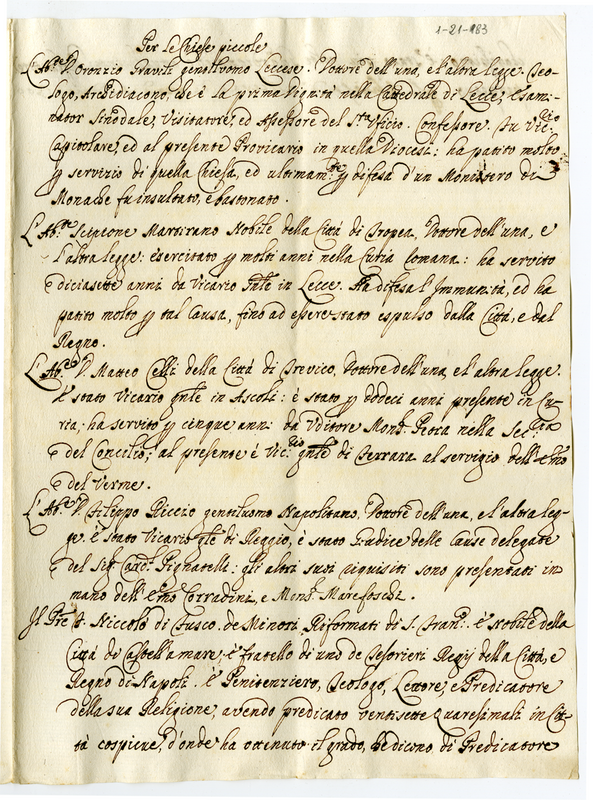 1-21-183
Per le Chiese piccole
L'Ab.e D. Oronzio gentiluomo Leccese. Dottore dell'una, e l'altra legge. Teo-
logo, Archidiacono, che è la prima Dignità nella Cattedrale di Lecce, Esami-
nator Sinodale, Visitatore, ed Assessore del S.to Uficio. Confessore. Fu Vic.rio
Capitolare, ed al presente Provicario in quella Diocesi: ha patito molto
p servizio di quella Chiesa, ed ultimam.te p difesa d'un Monistero di
Monache fu insultato, e bastonato.
L'Ab.te Scipione Martirano Nobile della Città di Tropea, Dottore dell'una, e
l'altra legge: esercitato p molti anni nella Curia Romana: ha servito
diciasette anni da Vicario Gnle in Lecce. Ha difesa l'Immunità, ed ha
patito molto p tal causa, fino ad essere stato espulso dalla Città, e dal
Regno.
L'Ab.e D. Matteo Celli della Città di Trevico, Dottore dell'una, e l'altra legge.
È stato Vicario gnle in Ascoli: è stato p dodeci anni presente in Cu-
ria; ha servito p cinque anni da Uditore Mons.r nella Sec.ria
del Concilio; al presente è Vic.rio gnle di Ferrara al servigio dell'Emo
del Verme.
L'Ab.e D. Filippo Riccio gentiluomo Napolitano. Dottore dell'una, e l'altra leg-
ge. è stato Vicario gle di Reggio, è stato Giudice delle Cause delegate
del Sig.r Card. Pignatelli: gli altri suoi riquisiti sono presentati in
mano dell'Emo Corradini, e Mons.r Marefoschi.
Il Pre F. Niccolò di Fusco de Minori Riformati di S. Fran.co è Nobile della
Città di Castell'amare, è fratello di uno de Tesorieri Regij della Città, e
Regno di Napoli. è Penitenziero, Teologo, Lettore, e Predicatore
della sua Religione, avendo predicato ventisette Quaresimali in Cit-
tà cospicue, d'onde ha ottenuto il grado, che dicono di Predicatore